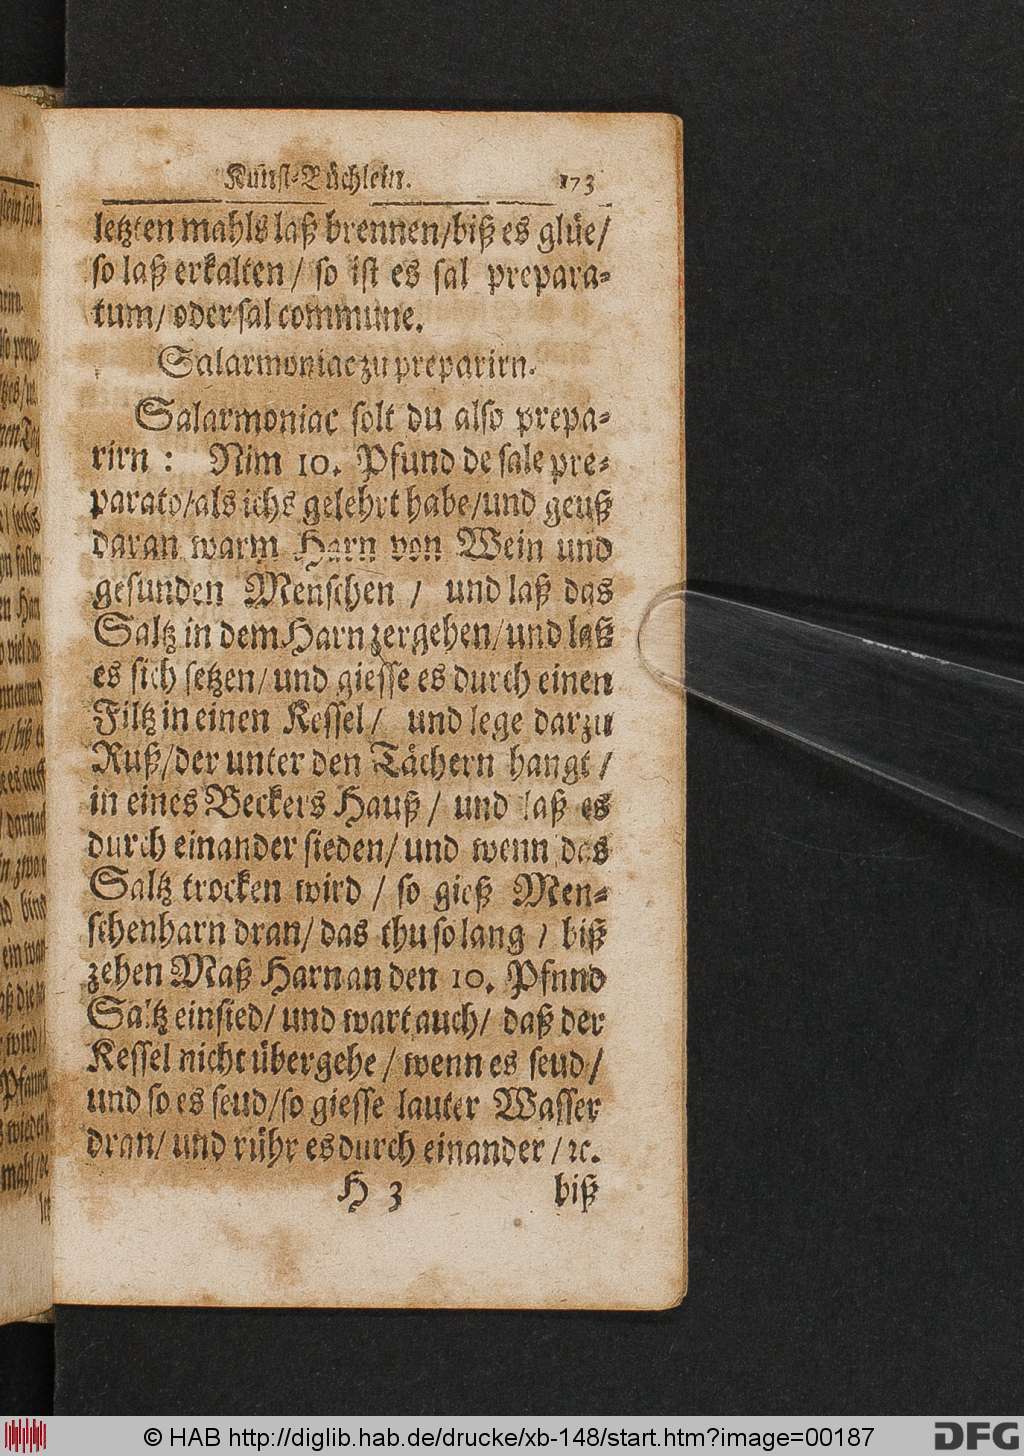 Kunst-Büchlein. 173
letzten mahls laß brennen/biß es glüe/
so laß erkalten/ so ist es sal prepara-
tum/ oder sal commune.
Salarmoniac zu preparirn.
Salarmoniac solt du also prepa-
rirn : Nim 10. Pfund de sale pre-
parato/als ichs gelehrt habe/und geuß
daran warm Harn von Wein und
gesunden Menschen / und laß das
Saltz in dem Harn zergehen/und laß
es sich setzen/ und giesse es durch einen
Filtz in einen Kessel/ und lege darzu
Ruß/der unter den Tächern hangt /
in eines Beckers Hauß / und laß es
durch einander sieden/ und wenn das
Saltz trocken wird / so gieß Men-
schenharn dran/ das thu so lang / biß
zehen Maß Harn an den 10. Pfnnd
Saltz einsied/ und wart auch/ daß der
Kessel nicht übergehe / wenn es seud/
und so es seud/so giesse lauter Wasser
dran/ und rühr es durch einander / ꝛc.
H 3 biß
© HAB http://diglib.hab.de/drucke/xb-148/start.htm?image=00187
DFG